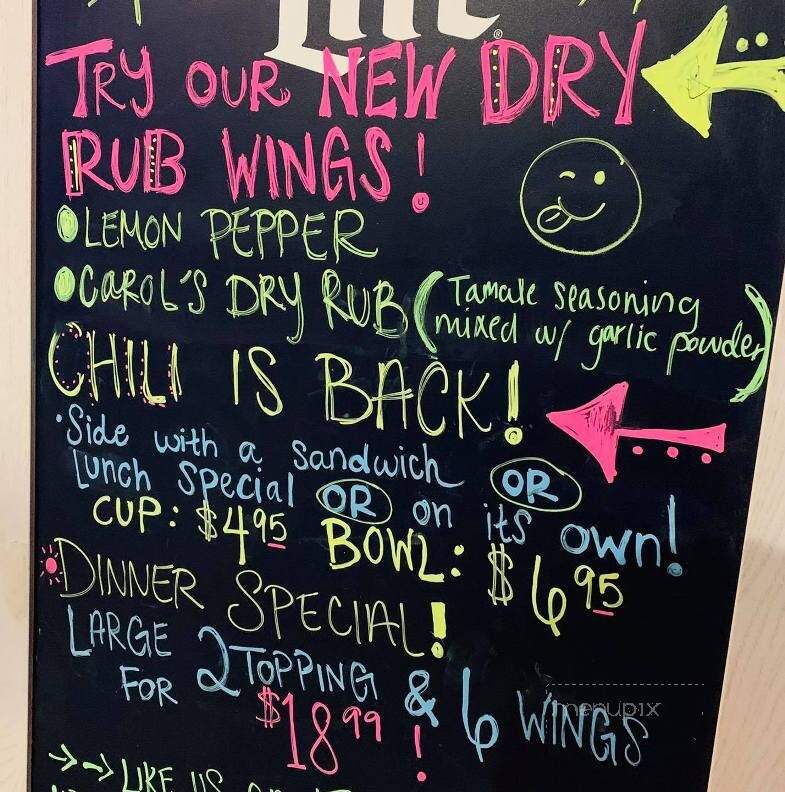 Lite
TRY OUR NEW DRY
RUB WINGS!
LEMON PEPPER
CAROL'S DRY RUB (Tamale seasoning
mixed w/ garlic powder)
CHILI IS BACK!
• Side with a sandwich OR
Lunch special OR on its own!
CUP: $4.95 BOWL: $6.95
DINNER SPECIAL!
LARGE 2 TOPPING & 6 WINGS
FOR $18.99!
LIKE US
menupix